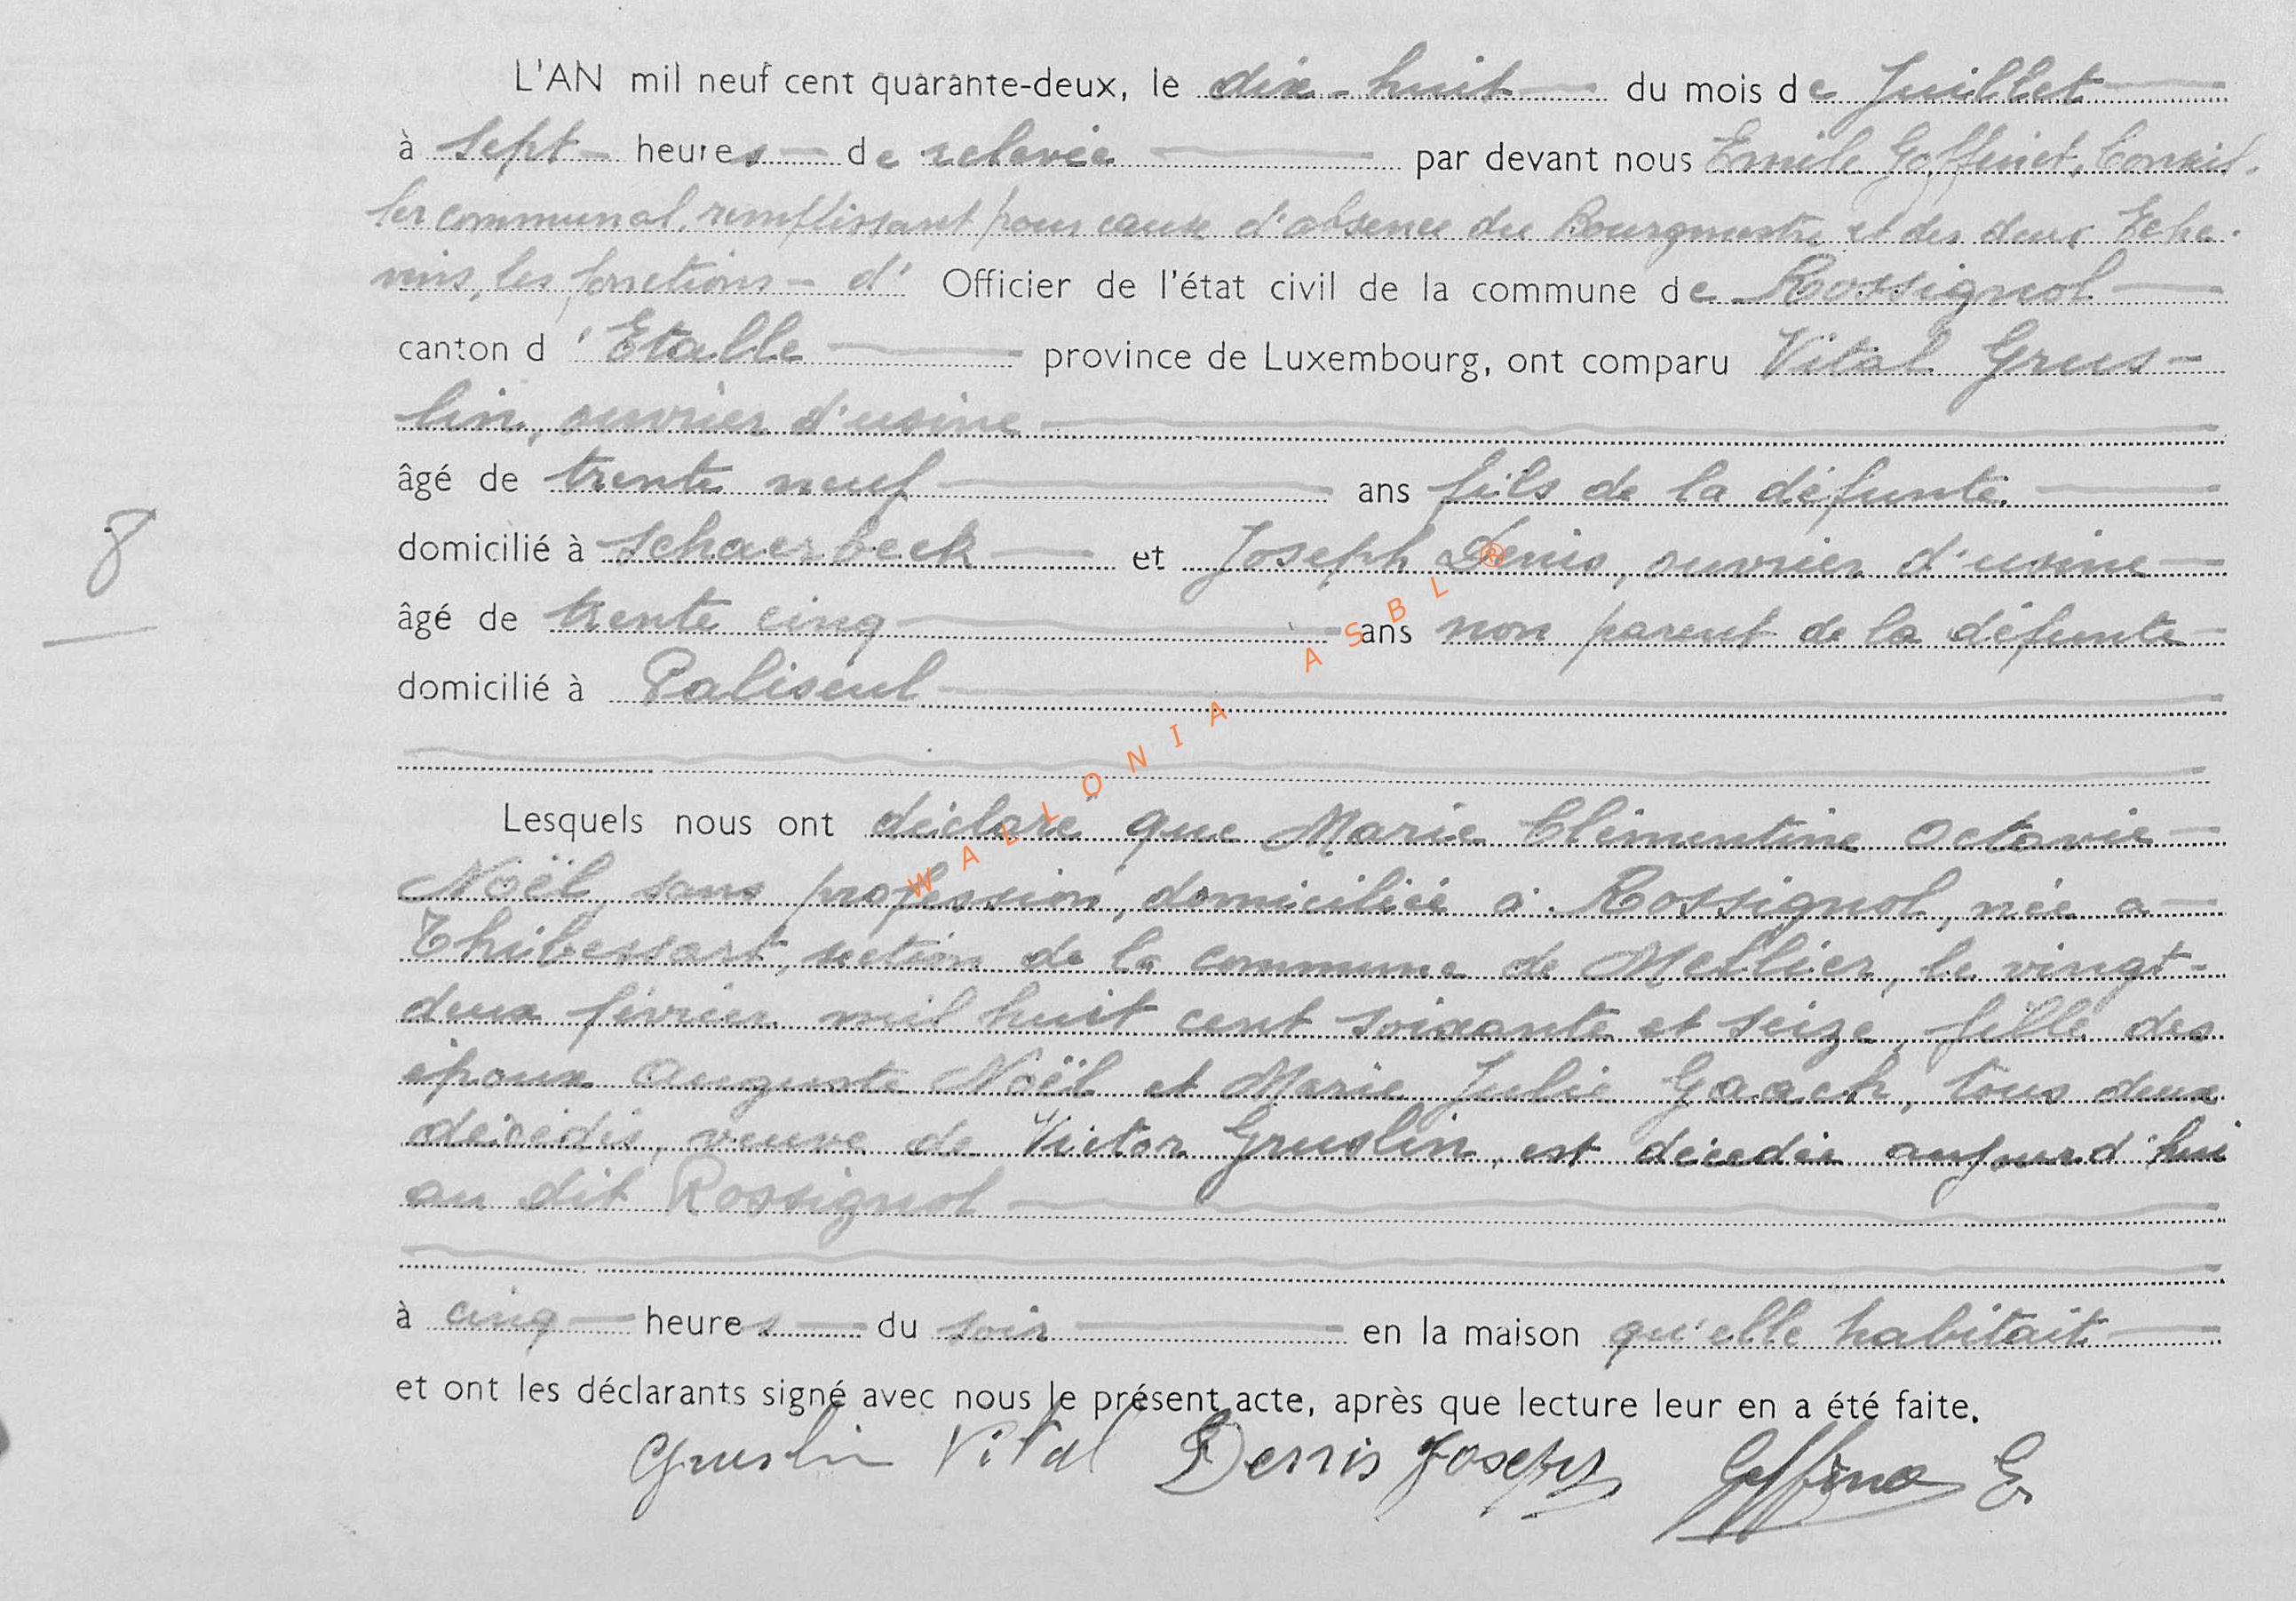 L'AN mil neuf cent quarante-deux, le dix-huit du mois de Juillet
à sept heures de relevée par devant nous Emile Goffinet, Conseil-
ler communal, remplissant pour cause d'absence du Bourgmestre et des deux Eche-
vins, les fonctions d' Officier de l'état civil de la commune de Rossignol
canton d'Etalle province de Luxembourg, ont comparu Vital Grus-
lin, ouvrier d'usine
âgé de trente neuf ans fils de la défunte.
domicilié à Schaerbeek et Joseph Denis, ouvrier d'usine
8
âgé de trente cinq ans non parent de la défunte
domicilié à Paliseul
Lesquels nous ont déclaré que Marie Clémentine Octavie
Noël, sans profession, domiciliée à Rossignol, née a
Thibessart, section de la commune de Mellier, le vingt-
deux février mil huit cent soixante et seize, fille des
époux Auguste Noël et Marie Julie Gaach, tous deux
décédés, veuve de Victor Gruslin, est décédée aujourd'hui
au dit Rossignol
à cinq heures du soir en la maison qu'elle habitait
et ont les déclarants signé avec nous le présent acte, après que lecture leur en a été faite.
Gruslin Vital Denis Joseph Goffinet E
WALLONIA ASBL ®